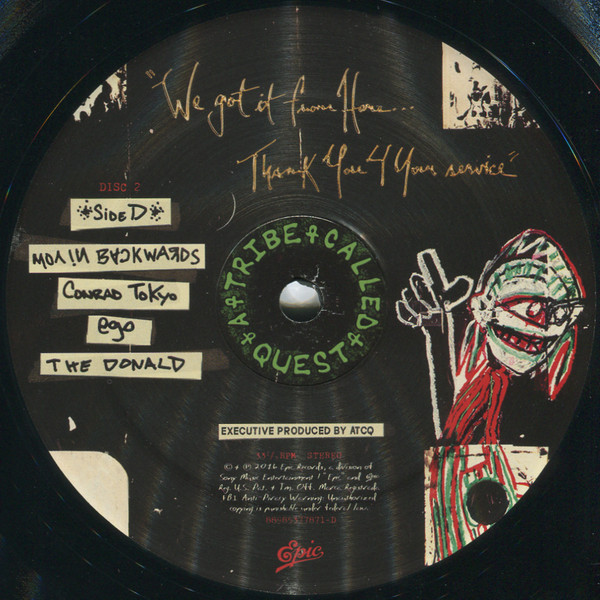 "We got it from Here...
Thank You 4 Your service"
DISC 2
SIDE D
MOVIN BACKWARDS
CONRAD TOKYO
ego
THE DONALD
A TRIBE CALLED QUEST
EXECUTIVE PRODUCED BY ATCQ
33 1/3 RPM STEREO
© + ℗ 2016 Epic Records, a division of
Sony Music Entertainment / "Epic" and
Reg. U.S. Pat. + Tm. Off. Marca Registrada
FBI Anti-Piracy Warning: Unauthorized
copying is punishable under federal law.
Epic